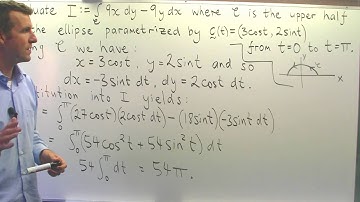 uate I := ∫ 9x dy - 9y dx where C is the upper half
the ellipse parametrized by c(t) = (3cost, 2sint)
ng C we have: from t=0 to t=π.
x = 3cost, y = 2sint and
so
dx = -3sint dt, dy = 2cost dt.
y
C
x
stitution into I yields:
= ∫₀^π (27cost)(2cost dt) - (18sint)(-3sint dt)
= ∫₀^π (54cos²t + 54sin²t) dt
54 ∫₀^π dt = 54π.